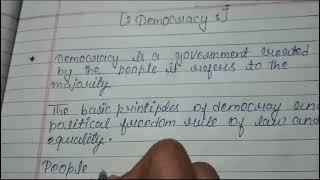 [: Democracy :]
* Democracy is a government created
by the people it refers to the
majority
The basic principles of democracy and
political freedom rule of law and
equality.
People